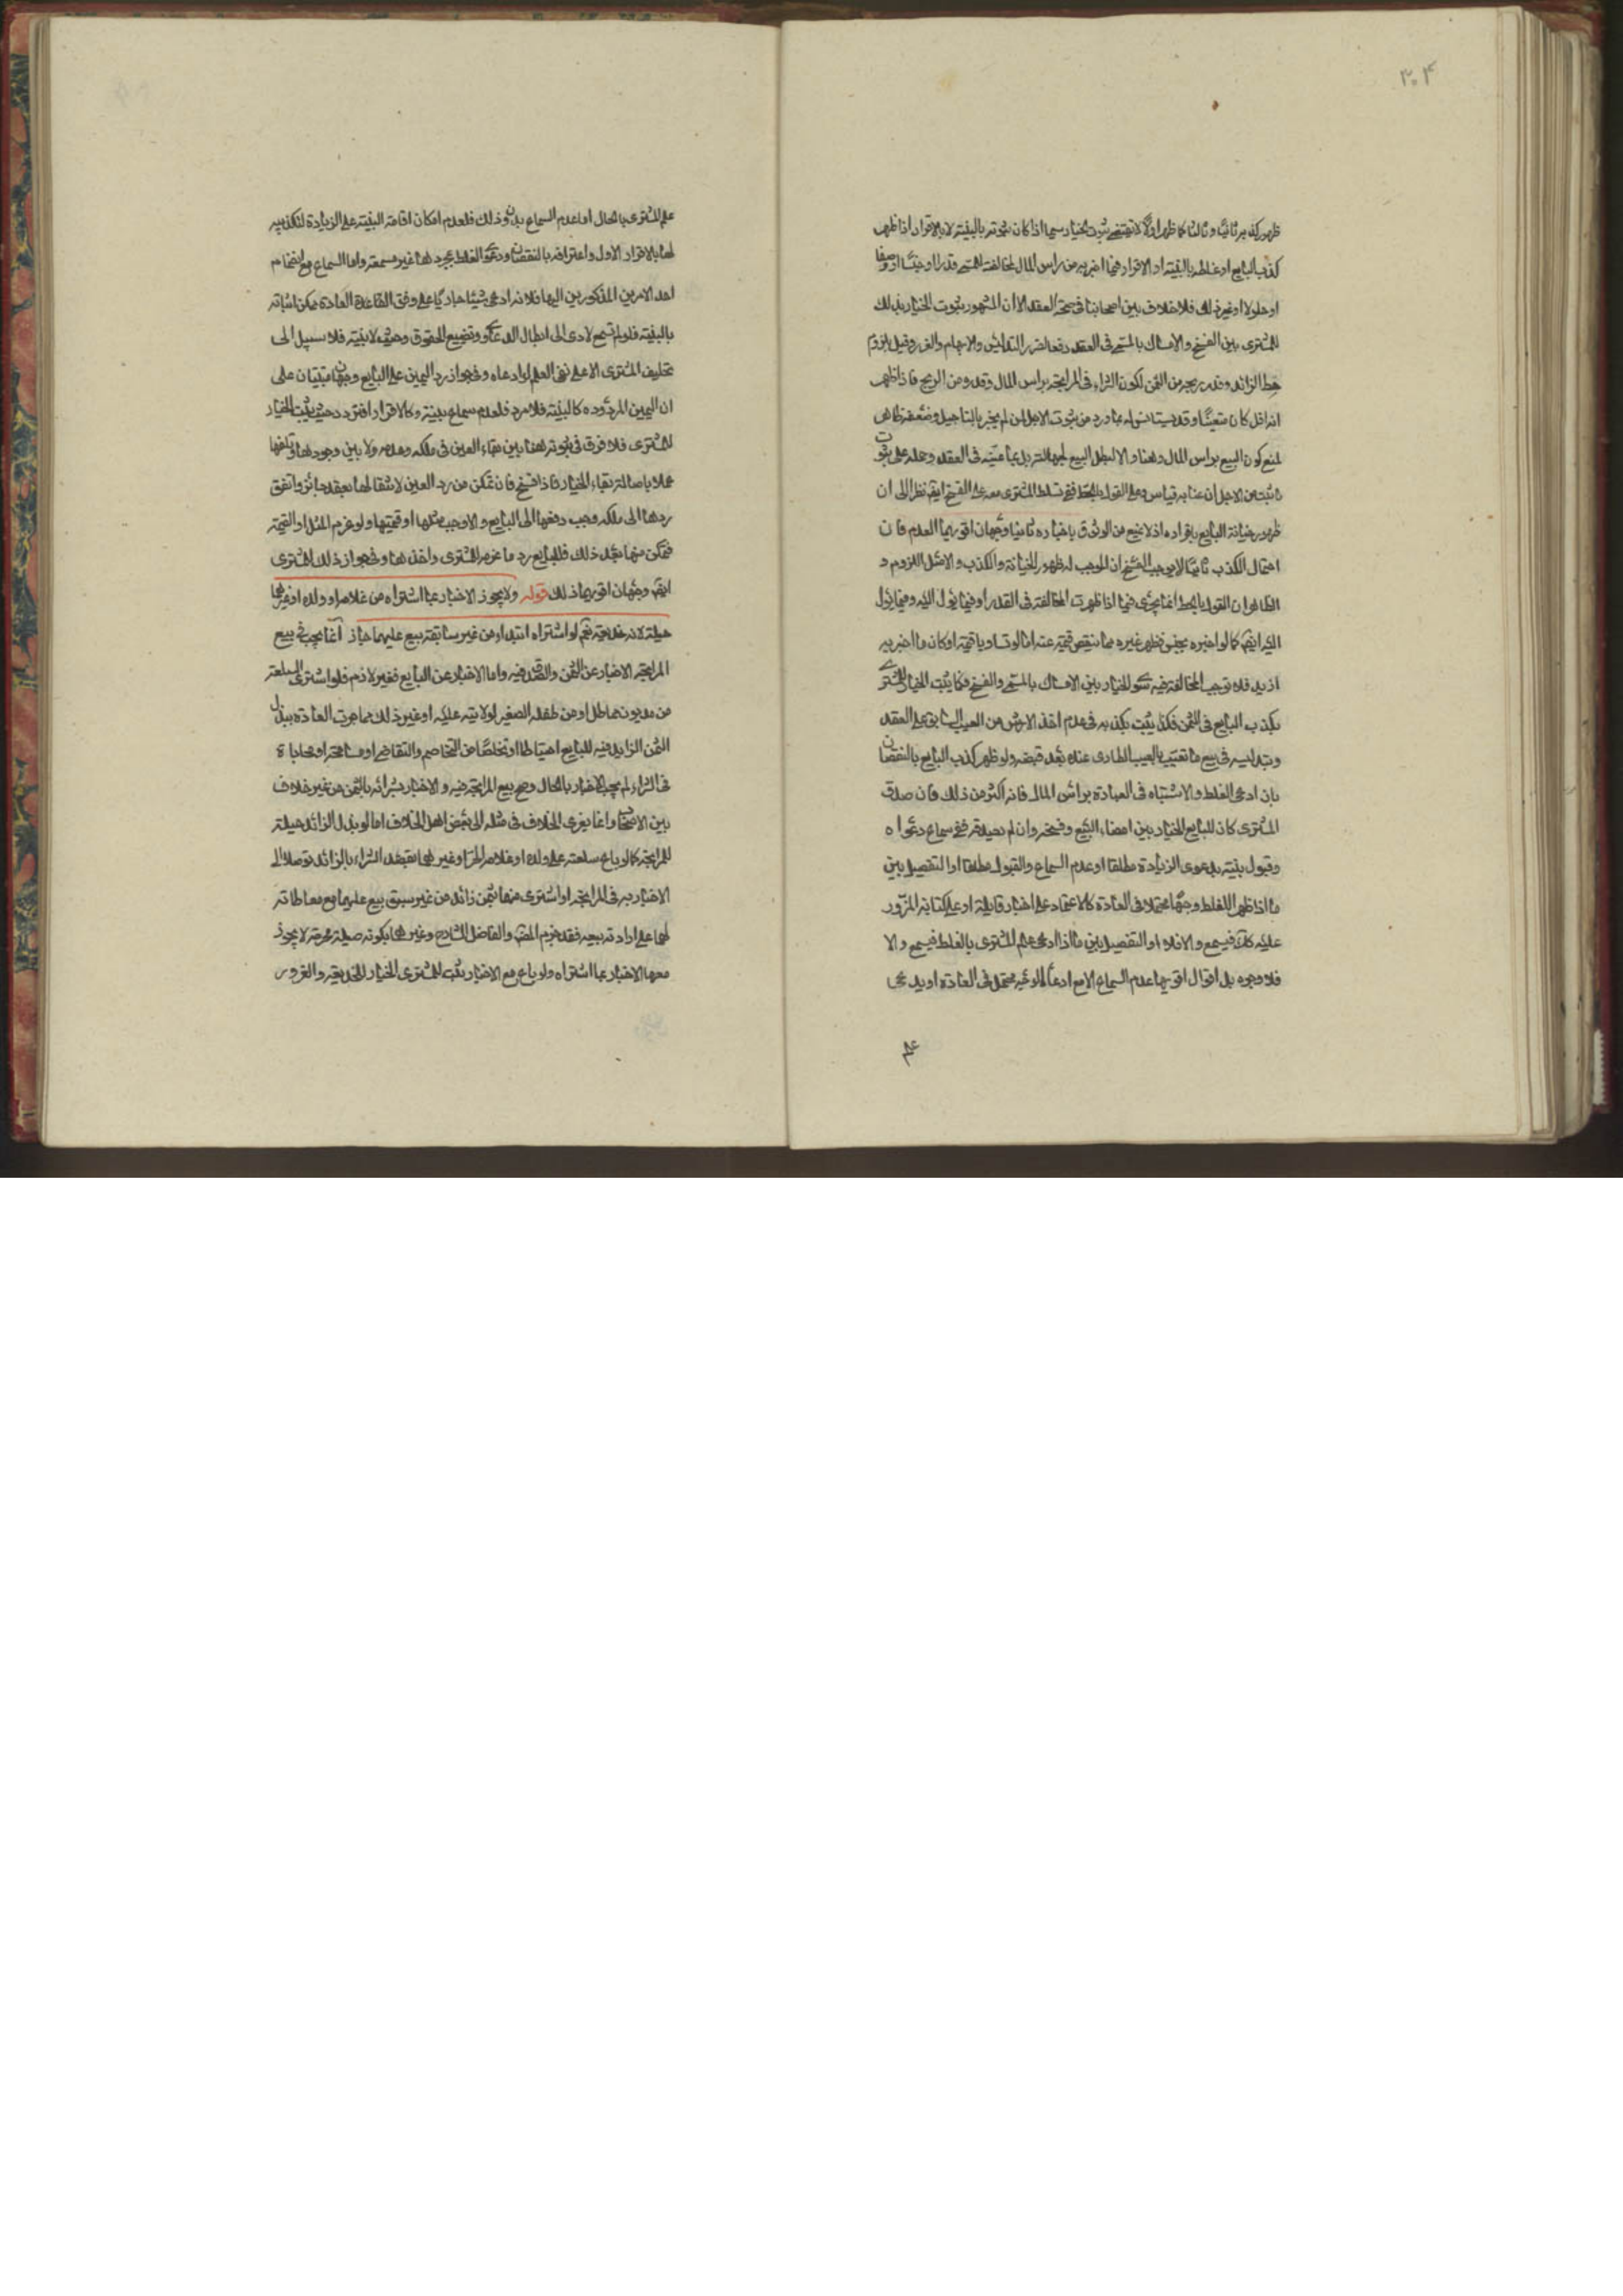 ٣٠٤
ظهور كذبه ثانيا وثالثا كما ظهر اولا لا يقتضى ثبوت الخيار سيما اذا كان ثبوته بالبينة لا بالاقرار اذا ظهر
كذب البايع او غلطه بالبينة او الاقرار فيما اخبر به من راس المال لمخالفته للمسمى قدرا او جنسا او وصفا
او حلولا او غير ذلك فلا خلاف بين اصحابنا فى صحة العقد الا ان المشهور ثبوت الخيار بذلك
للمشترى بين الفسخ والامساك بالمسمى فى العقد دفعا لضرر التدليس والابهام والغرر وقيل بلزوم
حط الزائد وقدر ربحه من الثمن لكون الشراء فى المرابحة براس المال وقدره من الربح فاذا ظهر
انه اقل كان متعينا وقد يستانس له بما ورد من ثبوت الاجل لمن لم يخبر بالتاجيل وضعفه ظاهر
لمنع كون البيع براس المال واقعا والا لبطل البيع لجهالته بل بما عينه فى العقد وحمله على ثبوت
ما ثبت من الاجل ان عنا به قياس وعلى القول بالحط ففى تسلط المشترى معه على الفسخ ايضا نظرا الى ان
ظهور خيانة البايع باقراره اذ لا يمنع من الوثوق باخباره ثانيا وجهان اقربهما العدم فان
احتمال الكذب ثانيا لا يوجب الفسخ ان الموجب له ظهور الخيانة والكذب والاصل اللزوم و
الظاهر ان القول بالحط انما يجرى فيما اذا ظهرت المخالفة فى القدر او فيما يؤل اليه وفيما يؤل
اليه ايضا كما لو اخبره بجنس فظهر غيره مما ينقص قيمة عنه اما لو تساويا قيمة او كان ما اخبر به
ازيد فلا توجب المخالفة فيه سوى الخيار بين الامساك بالمسمى والفسخ فكما يثبت الخيار للمشترى
بكذب البايع فى الثمن فكذا يثبت بكذبه فى عدم اخذ الارش من العيب السابق على العقد
وتدليسه فى بيع ما تعيب بالعيب الطارى عنده بعد قبضه ولو ظهر كذب البايع بالنقصان
بان ادعى الغلط والاشتباه فى العبادة براس المال فانه اكثر من ذلك فان صدق
المشترى كان للبايع الخيار بين امضاء البيع وفسخه وان لم يصدقه ففى سماع دعواه
وقبول بينته بدعوى الزيادة مطلقا او عدم السماع والقبول مطلقا او التفصيل بين
ما اذا ظهر للغلط وجها محتملا فى العادة كالاعتماد على اخبار قابلة او على كتابة المزور
عليه كانت فيسمع والا فلا او التفصيل بين ما اذا ادعى علم المشترى بالغلط فيسمع والا
فلا وجوه بل اقوال اقربها عدم السماع الا مع ادعائه لوجه محتمل فى العادة او يدعى
علم
علم المشترى بالحال اما عدم السماع بدون ذلك فلعدم امكان اقامة البينة على الزيادة لتكذيبه
لها بالاقرار الاول واعترافه بالنقصان ودعوى الغلط بمجردها غير مسمعة واما السماع مع انضمام
احد الامرين المذكورين اليها فلانه ادعى شيئا جاريا على وفق القاعدة العادة يمكن اثباته
بالبينة فلو لم تسمع لادى الى ابطال الدعاوى وتضييع الحقوق وحيث لا بينة فلا سبيل الى
تحليف المشترى الا على نفى العلم لو ادعاه وفى جواز رد اليمين على البايع وجهان مبنيان على
ان اليمين المردوده كالبينة فلا مرد فلعدم سماع بينة وكالاقرار افترد وحيث يثبت الخيار
للمشترى فلا فرق فى ثبوته هنا بين بقاء العين فى ملكه وعدمه ولا بين وجودها وتلفها
عملا باصالة بقاء الخيار فاذا فسخ فان تمكن من رد العين لانتقالها بعقد جائز واتفق
ردها الى ملكه وجب دفعها الى البايع والا وجب مثلها او قيمتها ولو غرم المثل او القيمة
فتمكن منها بعد ذلك فللبايع رد ما غرمه المشترى واخذها وفى جواز ذلك للمشترى
ايضا وجهان اقربهما ذلك قوله ولا يجوز الاخبار بما اشتراه من غلامه او ولده او غيرهما
حيلة لانه خديعة نعم لو اشتراه ابتداء من غير سابقة بيع عليهما جاز انما يجب فى بيع
المرابحة الاخبار عن الثمن والصدق فيه واما الاخبار عن البايع فغير لازم فلو اشترى السلعة
من مديون مماطل او من طفله الصغير لولايته عليه او غير ذلك مما جرت العادة ببذل
الثمن الزايد فيه للبايع احتياطا او تخلصا من التخاصم والتقاضى او مسامحة او محاباة
فى الشراء لم يجب الاخبار بالحال وصح بيع المرابحة فيه والاخبار بشرائه بالثمن من غير خلاف
بين الاصحاب وانما يعزى الخلاف فى مثله الى بعض اهل الخلاف اما لو بذل الزائد حيلة
للمرابحة كما لو باع سلعته على ولده او غلامه الحر او غيرهما بقصد الشراء بالزائد توصلا الى
الاخبار به فى المرابحة او اشترى منهما بثمن زائد من غير سبق بيع عليهما مع معاطاته
لهما على ارادته بيعه فقد جزم المصنف والفاضل الشارح وغيرهما بكونه حيلة محرمة لا يجوز
معها الاخبار بما اشتراه ولو باع مع الاخبار يثبت للمشترى الخيار للخديعة والغرور